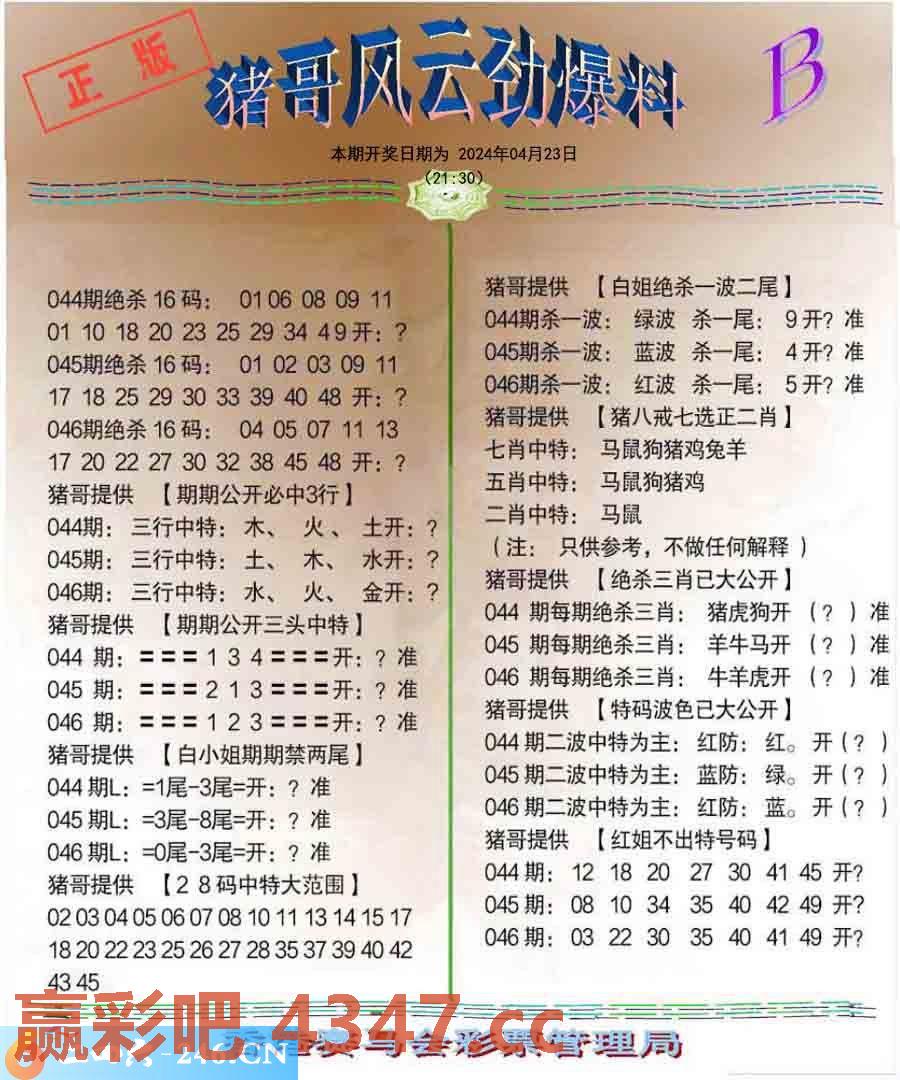 正版
猪哥风云劲爆料
B
本期开奖日期为 2024年04月23日
(21:30)
044期绝杀16码： 01 06 08 09 11
01 10 18 20 23 25 29 34 49开：?
045期绝杀16码： 01 02 03 09 11
17 18 25 29 30 33 39 40 48 开：?
046期绝杀16码： 04 05 07 11 13
17 20 22 27 30 32 38 45 48 开：?
猪哥提供 【期期公开必中3行】
044期：三行中特：木、 火、 土开：?
045期：三行中特：土、 木、 水开：?
046期：三行中特：水、 火、 金开：?
猪哥提供 【期期公开三头中特】
044 期：===134===开：? 准
045 期：===213===开：? 准
046 期：===123===开：? 准
猪哥提供 【白小姐期期禁两尾】
044期L：=1尾-3尾=开：? 准
045期L：=3尾-8尾=开：? 准
046期L：=0尾-3尾=开：? 准
猪哥提供 【28码中特大范围】
02 03 04 05 06 07 08 10 11 13 14 15 17
18 20 22 23 25 26 27 28 35 37 39 40 42
43 45
猪哥提供 【白姐绝杀一波二尾】
044期杀一波： 绿波 杀一尾： 9开? 准
045期杀一波： 蓝波 杀一尾： 4开? 准
046期杀一波： 红波 杀一尾： 5开? 准
猪哥提供 【猪八戒七选正二肖】
七肖中特： 马鼠狗猪鸡兔羊
五肖中特： 马鼠狗猪鸡
二肖中特： 马鼠
（注： 只供参考，不做任何解释 ）
猪哥提供 【绝杀三肖已大公开】
044 期每期绝杀三肖： 猪虎狗开 （? ）准
045 期每期绝杀三肖： 羊牛马开 （? ）准
046 期每期绝杀三肖： 牛羊虎开 （? ）准
猪哥提供 【特码波色已大公开】
044期二波中特为主：红防：红。开（? ）
045期二波中特为主：蓝防：绿。开（? ）
046期二波中特为主：红防：蓝。开（? ）
猪哥提供 【红姐不出特号码】
044期： 12 18 20 27 30 41 45 开?
045期： 08 10 34 35 40 42 49 开?
046期： 03 22 30 35 40 41 49 开?
赢彩吧 4347.cc
赛马会彩票管理局
246.CN